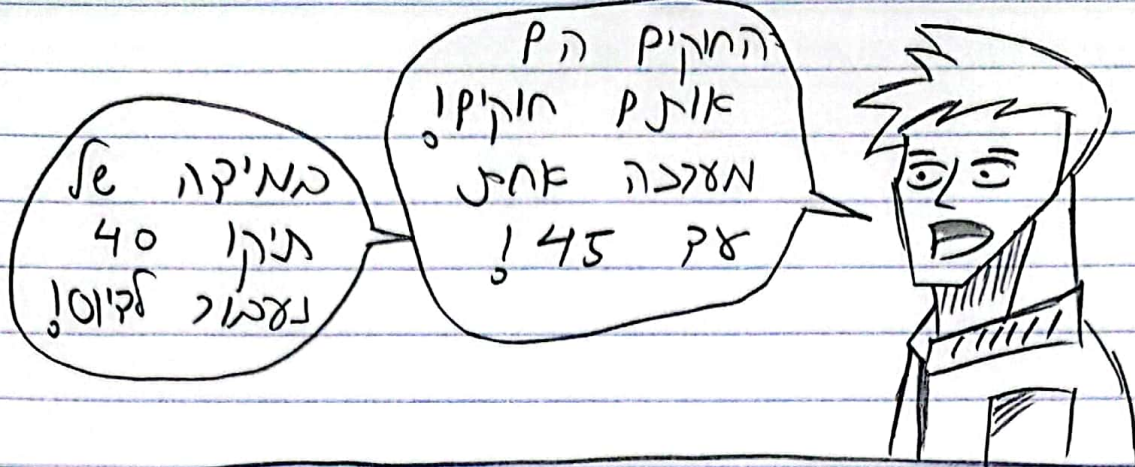 החוקים הם
אותם חוקים!
מערכה אחת
עד 45!
במידה של
תיקו 40
נעבור לדיוס!